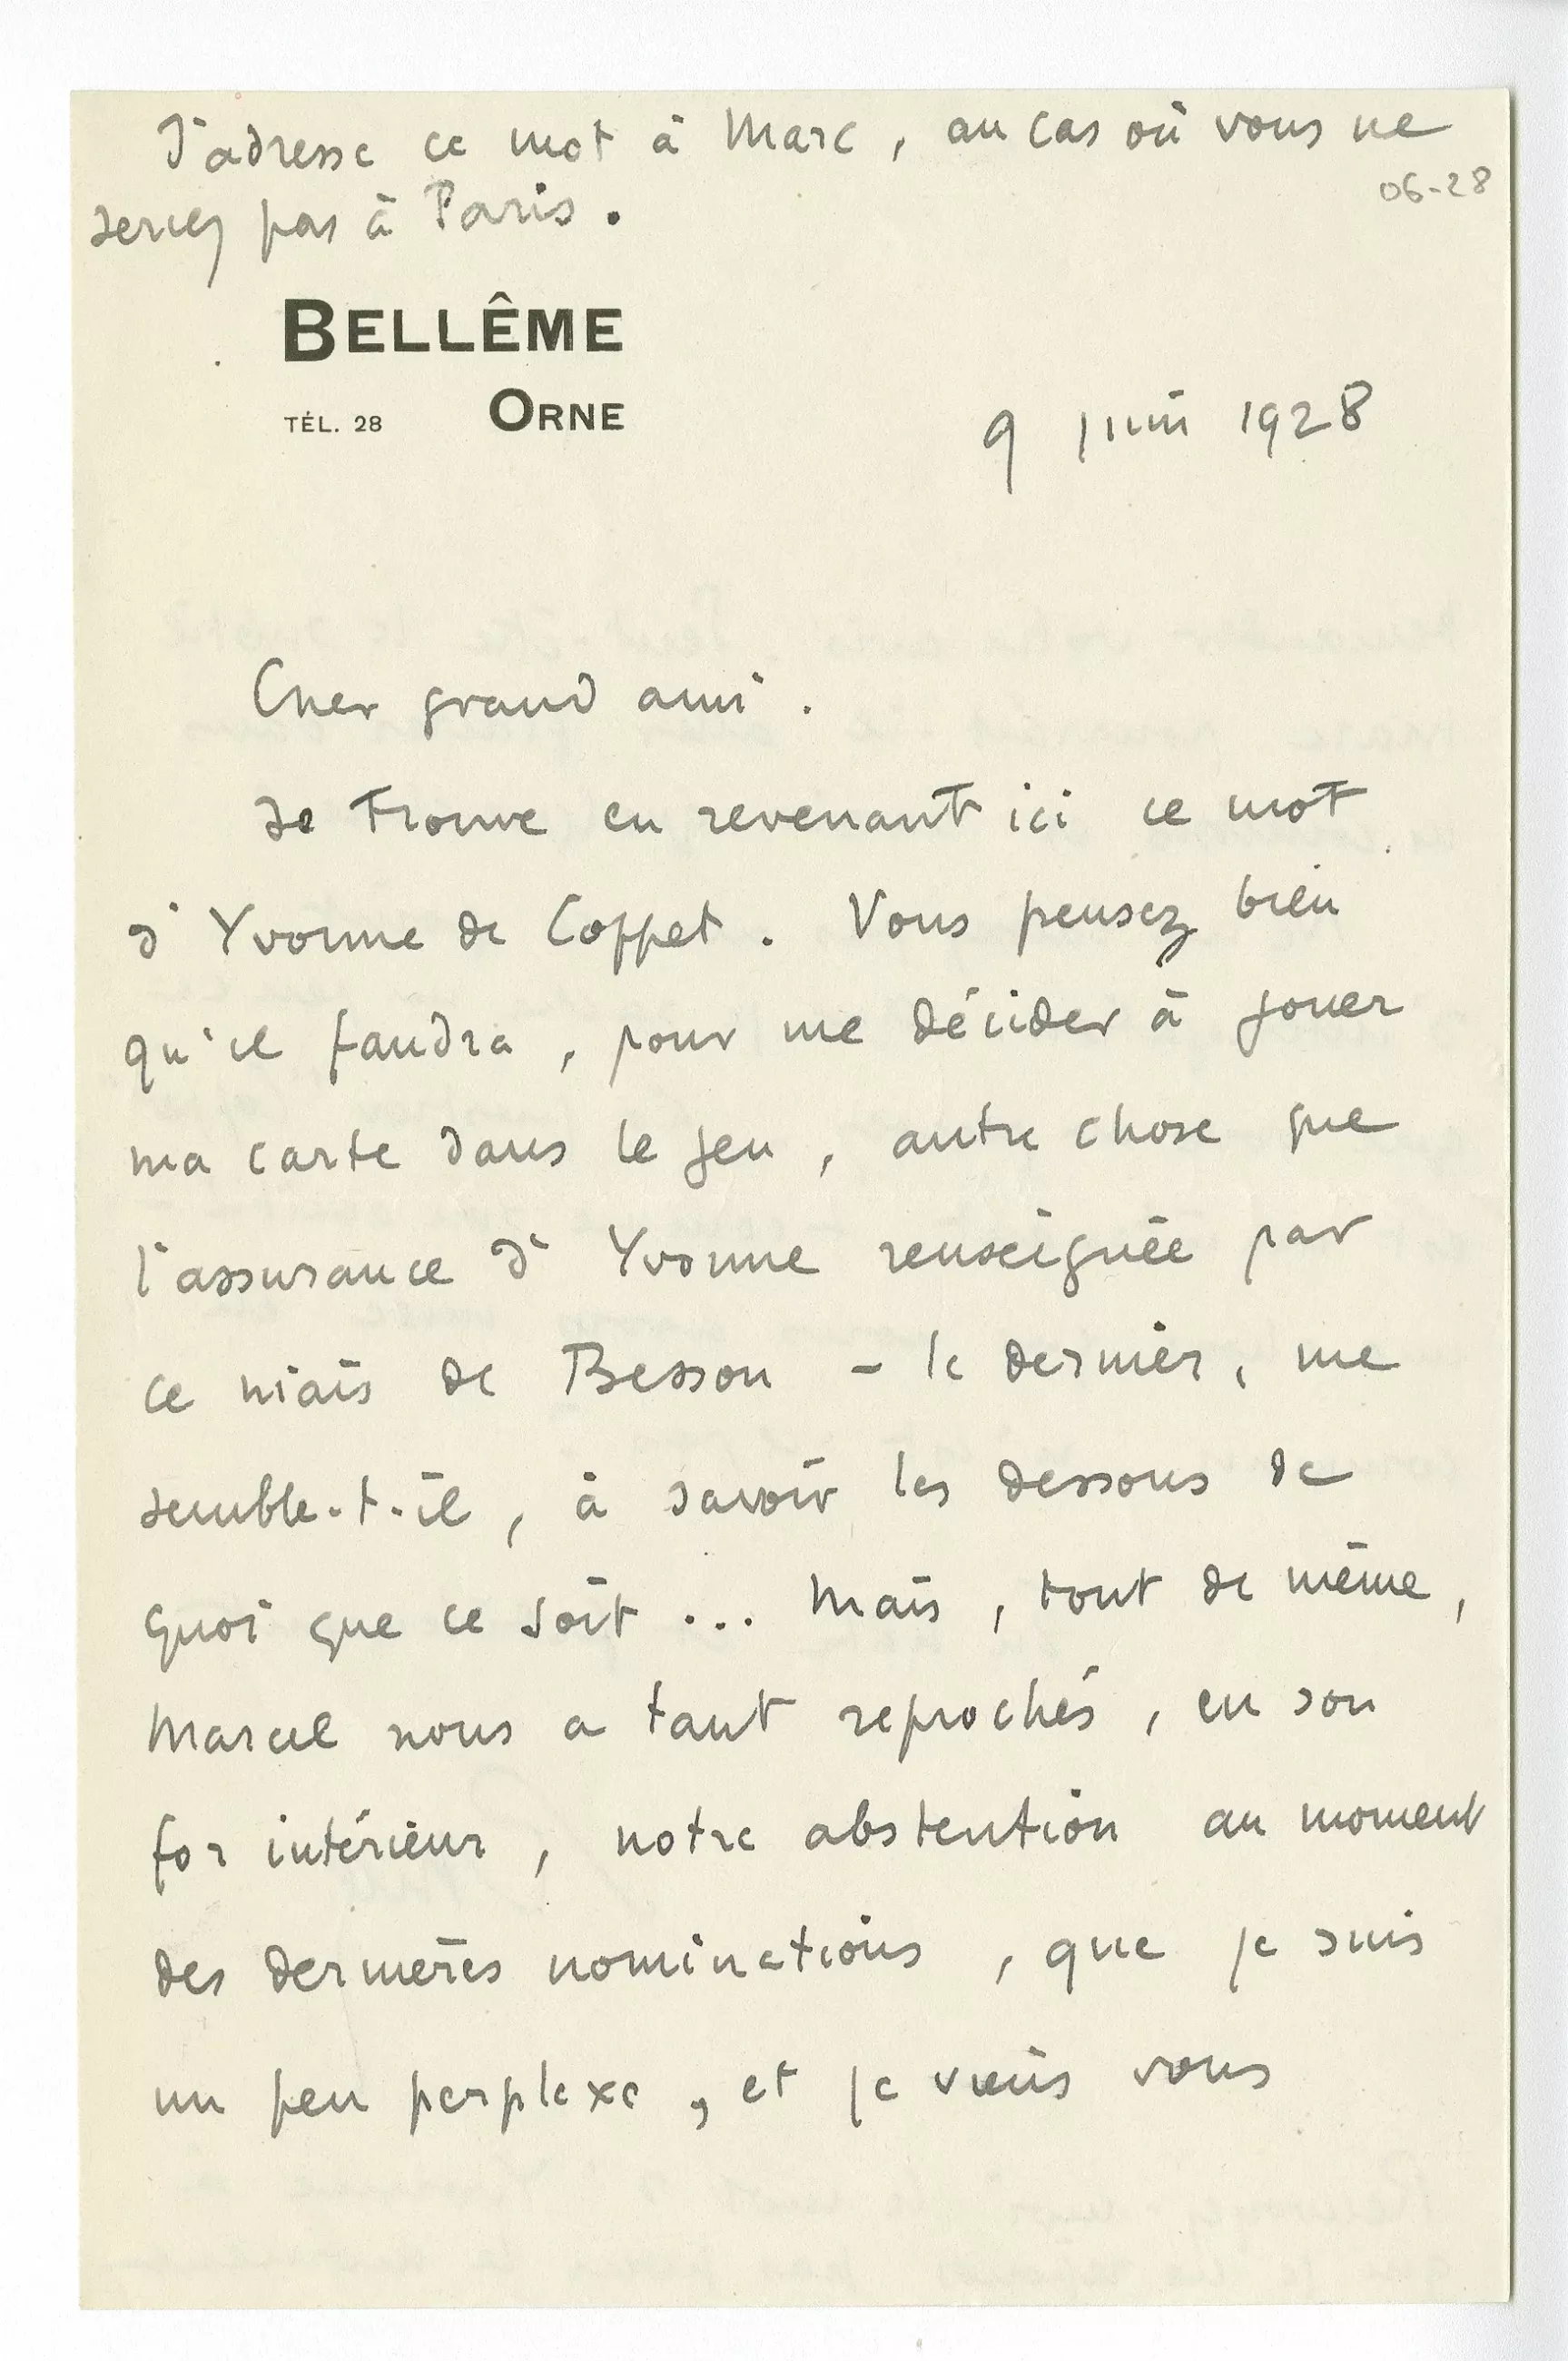 J'adresse ce mot à Marc, au cas où vous ne
06-28
seriez pas à Paris.
BELLÊME
TÉL. 28 ORNE
9 juin 1928
Cher grand ami.
Je trouve en revenant ici ce mot
d'Yvonne de Coppet. Vous pensez bien
qu'il faudra, pour me décider à jouer
ma carte dans le jeu, autre chose que
l'assurance d'Yvonne renseignée par
ce niais de Besson – le dernier, me
semble-t-il, à savoir les dessous de
quoi que ce soit... Mais, tout de même,
Marcel nous a tant reprochés, en son
for intérieur, notre abstention au moment
des dernières nominations, que je suis
un peu perplexe, et je viens vous